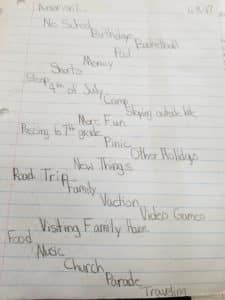 No School
Birthdays
Basketball
Pool
Money
Shorts
Sleep 4th of July
Camp
Staying outside late
More Fun
Passing to 7th grade
Pinic
Other Holidays
New Things
Road Trip
Family
Vaction
Video Games
Visiting Family House
Food
Music
Church
Parade
Traveling